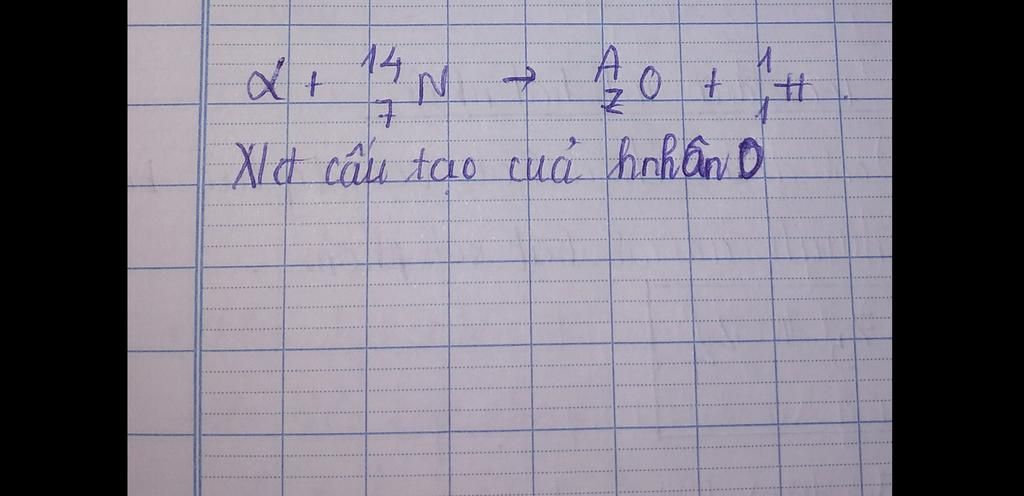 α + ¹⁴₇N → ᴬ_Z O + ¹₁H.
X/đ cấu tạo của hnhân O